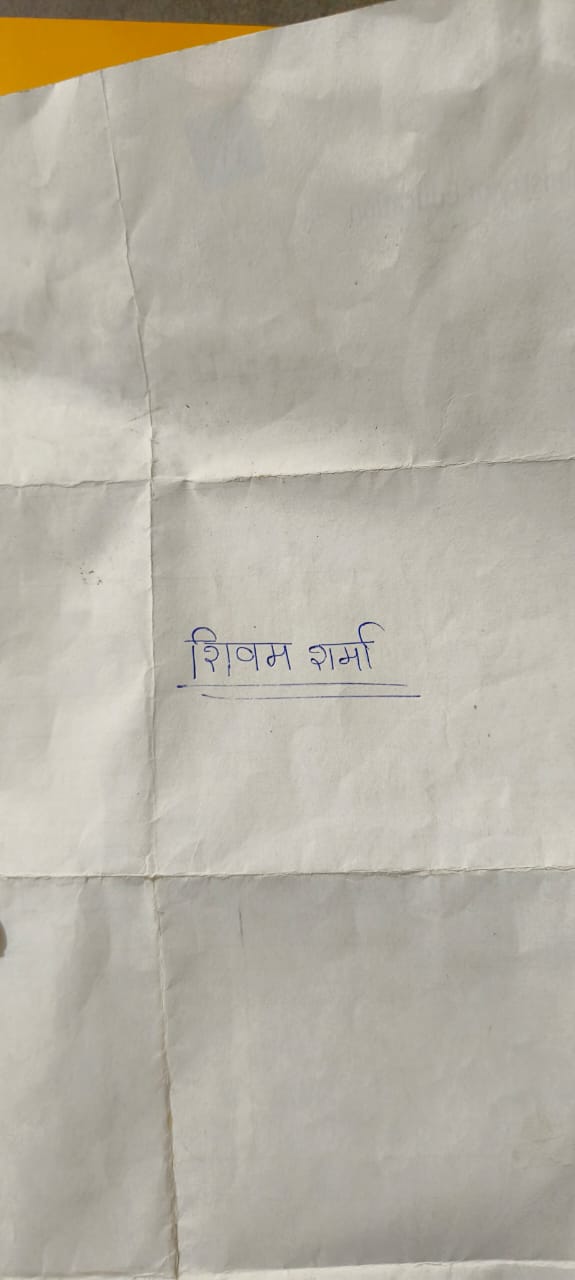 शिवंम शर्मा